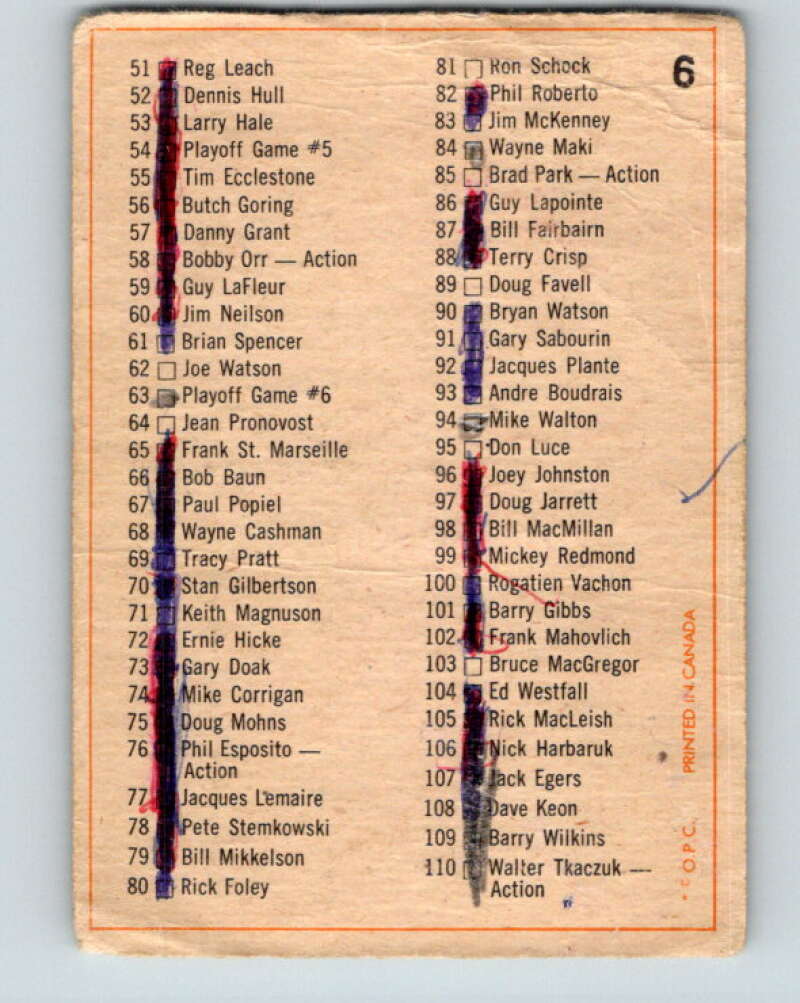 6
51 Reg Leach
52 Dennis Hull
53 Larry Hale
54 Playoff Game #5
55 Tim Ecclestone
56 Butch Goring
57 Danny Grant
58 Bobby Orr — Action
59 Guy LaFleur
60 Jim Neilson
61 Brian Spencer
62 Joe Watson
63 Playoff Game #6
64 Jean Pronovost
65 Frank St. Marseille
66 Bob Baun
67 Paul Popiel
68 Wayne Cashman
69 Tracy Pratt
70 Stan Gilbertson
71 Keith Magnuson
72 Ernie Hicke
73 Gary Doak
74 Mike Corrigan
75 Doug Mohns
76 Phil Esposito —
Action
77 Jacques Lemaire
78 Pete Stemkowski
79 Bill Mikkelson
80 Rick Foley
81 Ron Schock
82 Phil Roberto
83 Jim McKenney
84 Wayne Maki
85 Brad Park — Action
86 Guy Lapointe
87 Bill Fairbairn
88 Terry Crisp
89 Doug Favell
90 Bryan Watson
91 Gary Sabourin
92 Jacques Plante
93 Andre Boudrais
94 Mike Walton
95 Don Luce
96 Joey Johnston
97 Doug Jarrett
98 Bill MacMillan
99 Mickey Redmond
100 Rogatien Vachon
101 Barry Gibbs
102 Frank Mahovlich
103 Bruce MacGregor
104 Ed Westfall
105 Rick MacLeish
106 Nick Harbaruk
107 Jack Egers
108 Dave Keon
109 Barry Wilkins
110 Walter Tkaczuk —
Action
© O.P.C. PRINTED IN CANADA